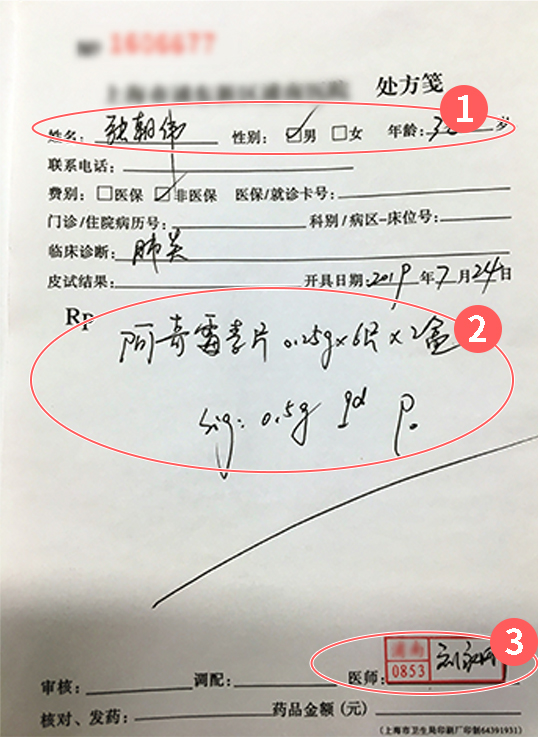 1606677
处方笺
1
姓名: 张朝伟 性别: ☑男 □女 年龄: 岁
联系电话:
费别: □医保 ☑非医保 医保/就诊卡号:
门诊/住院病历号: 科别/病区-床位号:
临床诊断: 肺炎
皮试结果: 开具日期: 2019年7月24日
Rp
2
阿奇霉素片 0.25g×6片×2盒
Sig: 0.5g qd p.o
3
浦南
0853
审核: 调配: 医师:
核对、发药: 药品金额(元)
(上海市卫生局印刷厂印制64391931)